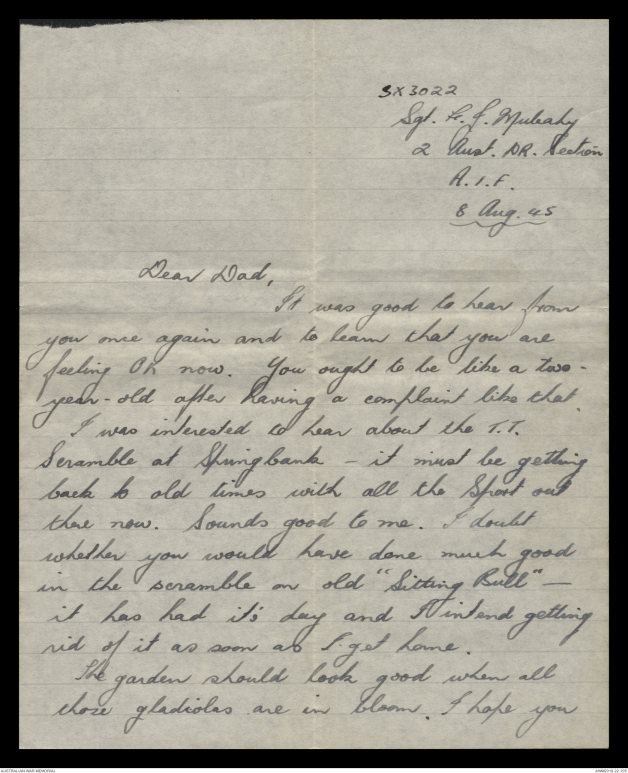 SX3022
Sgt. F. J. Mulcahy
2 Aust. DR. Section
A.I.F.
8 Aug. 45
Dear Dad,
It was good to hear from
you once again and to learn that you are
feeling OK now. You ought to be like a two-
year-old after having a complaint like that.
I was interested to hear about the T.T.
Scramble at Springbank — it must be getting
back to old times with all the Sport out
there now. Sounds good to me. I doubt
whether you would have done much good
in the scramble on old "Sitting Bull" —
it has had it's day and I intend getting
rid of it as soon as I get home.
The garden should look good when all
those gladiolas are in bloom. I hope you
AUSTRALIAN WAR MEMORIAL